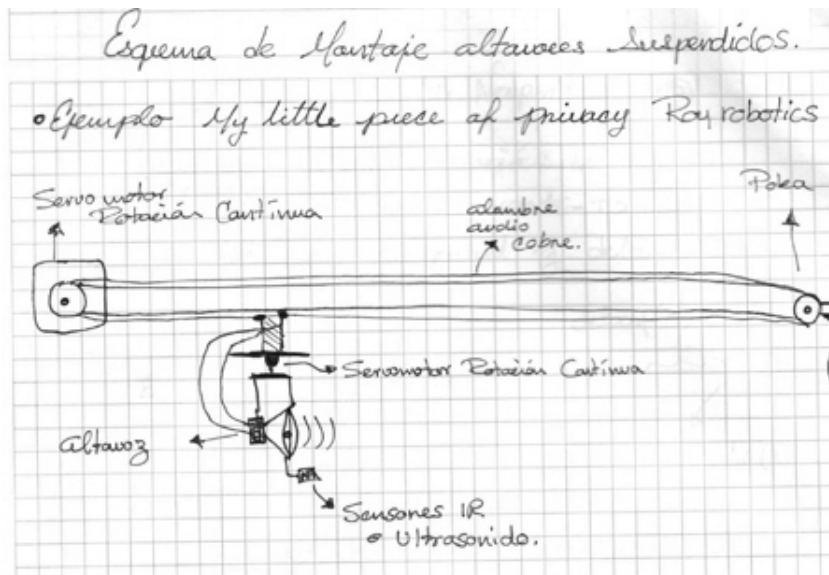 Esquema de Montaje altavoces Suspendidos.
• Ejemplo My little piece of privacy Roy robotics
Servo motor
Rotación Contínua
alambre
audio
cobre.
Polea
Servomotor Rotación Contínua
Altavoz
Sensores IR
o Ultrasonido.